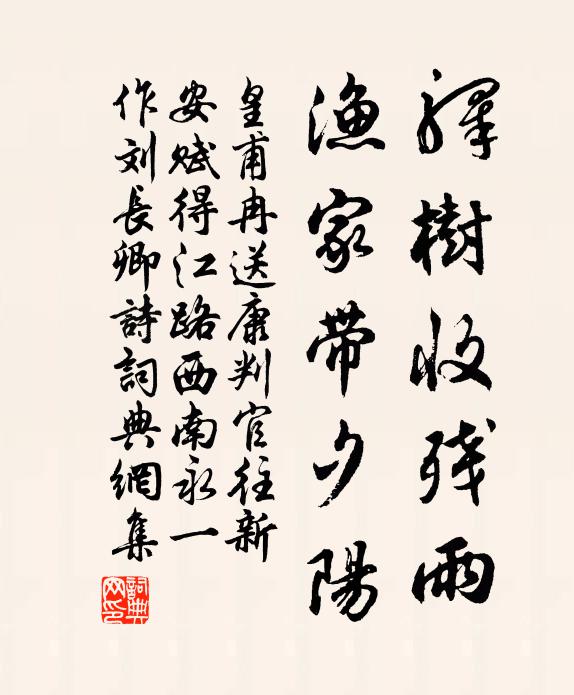 驛樹收残雨
漁家带夕陽
皇甫冉送康判官往新
安赋得江路西南永一
作刘長卿詩詞典網集
詞典
网印